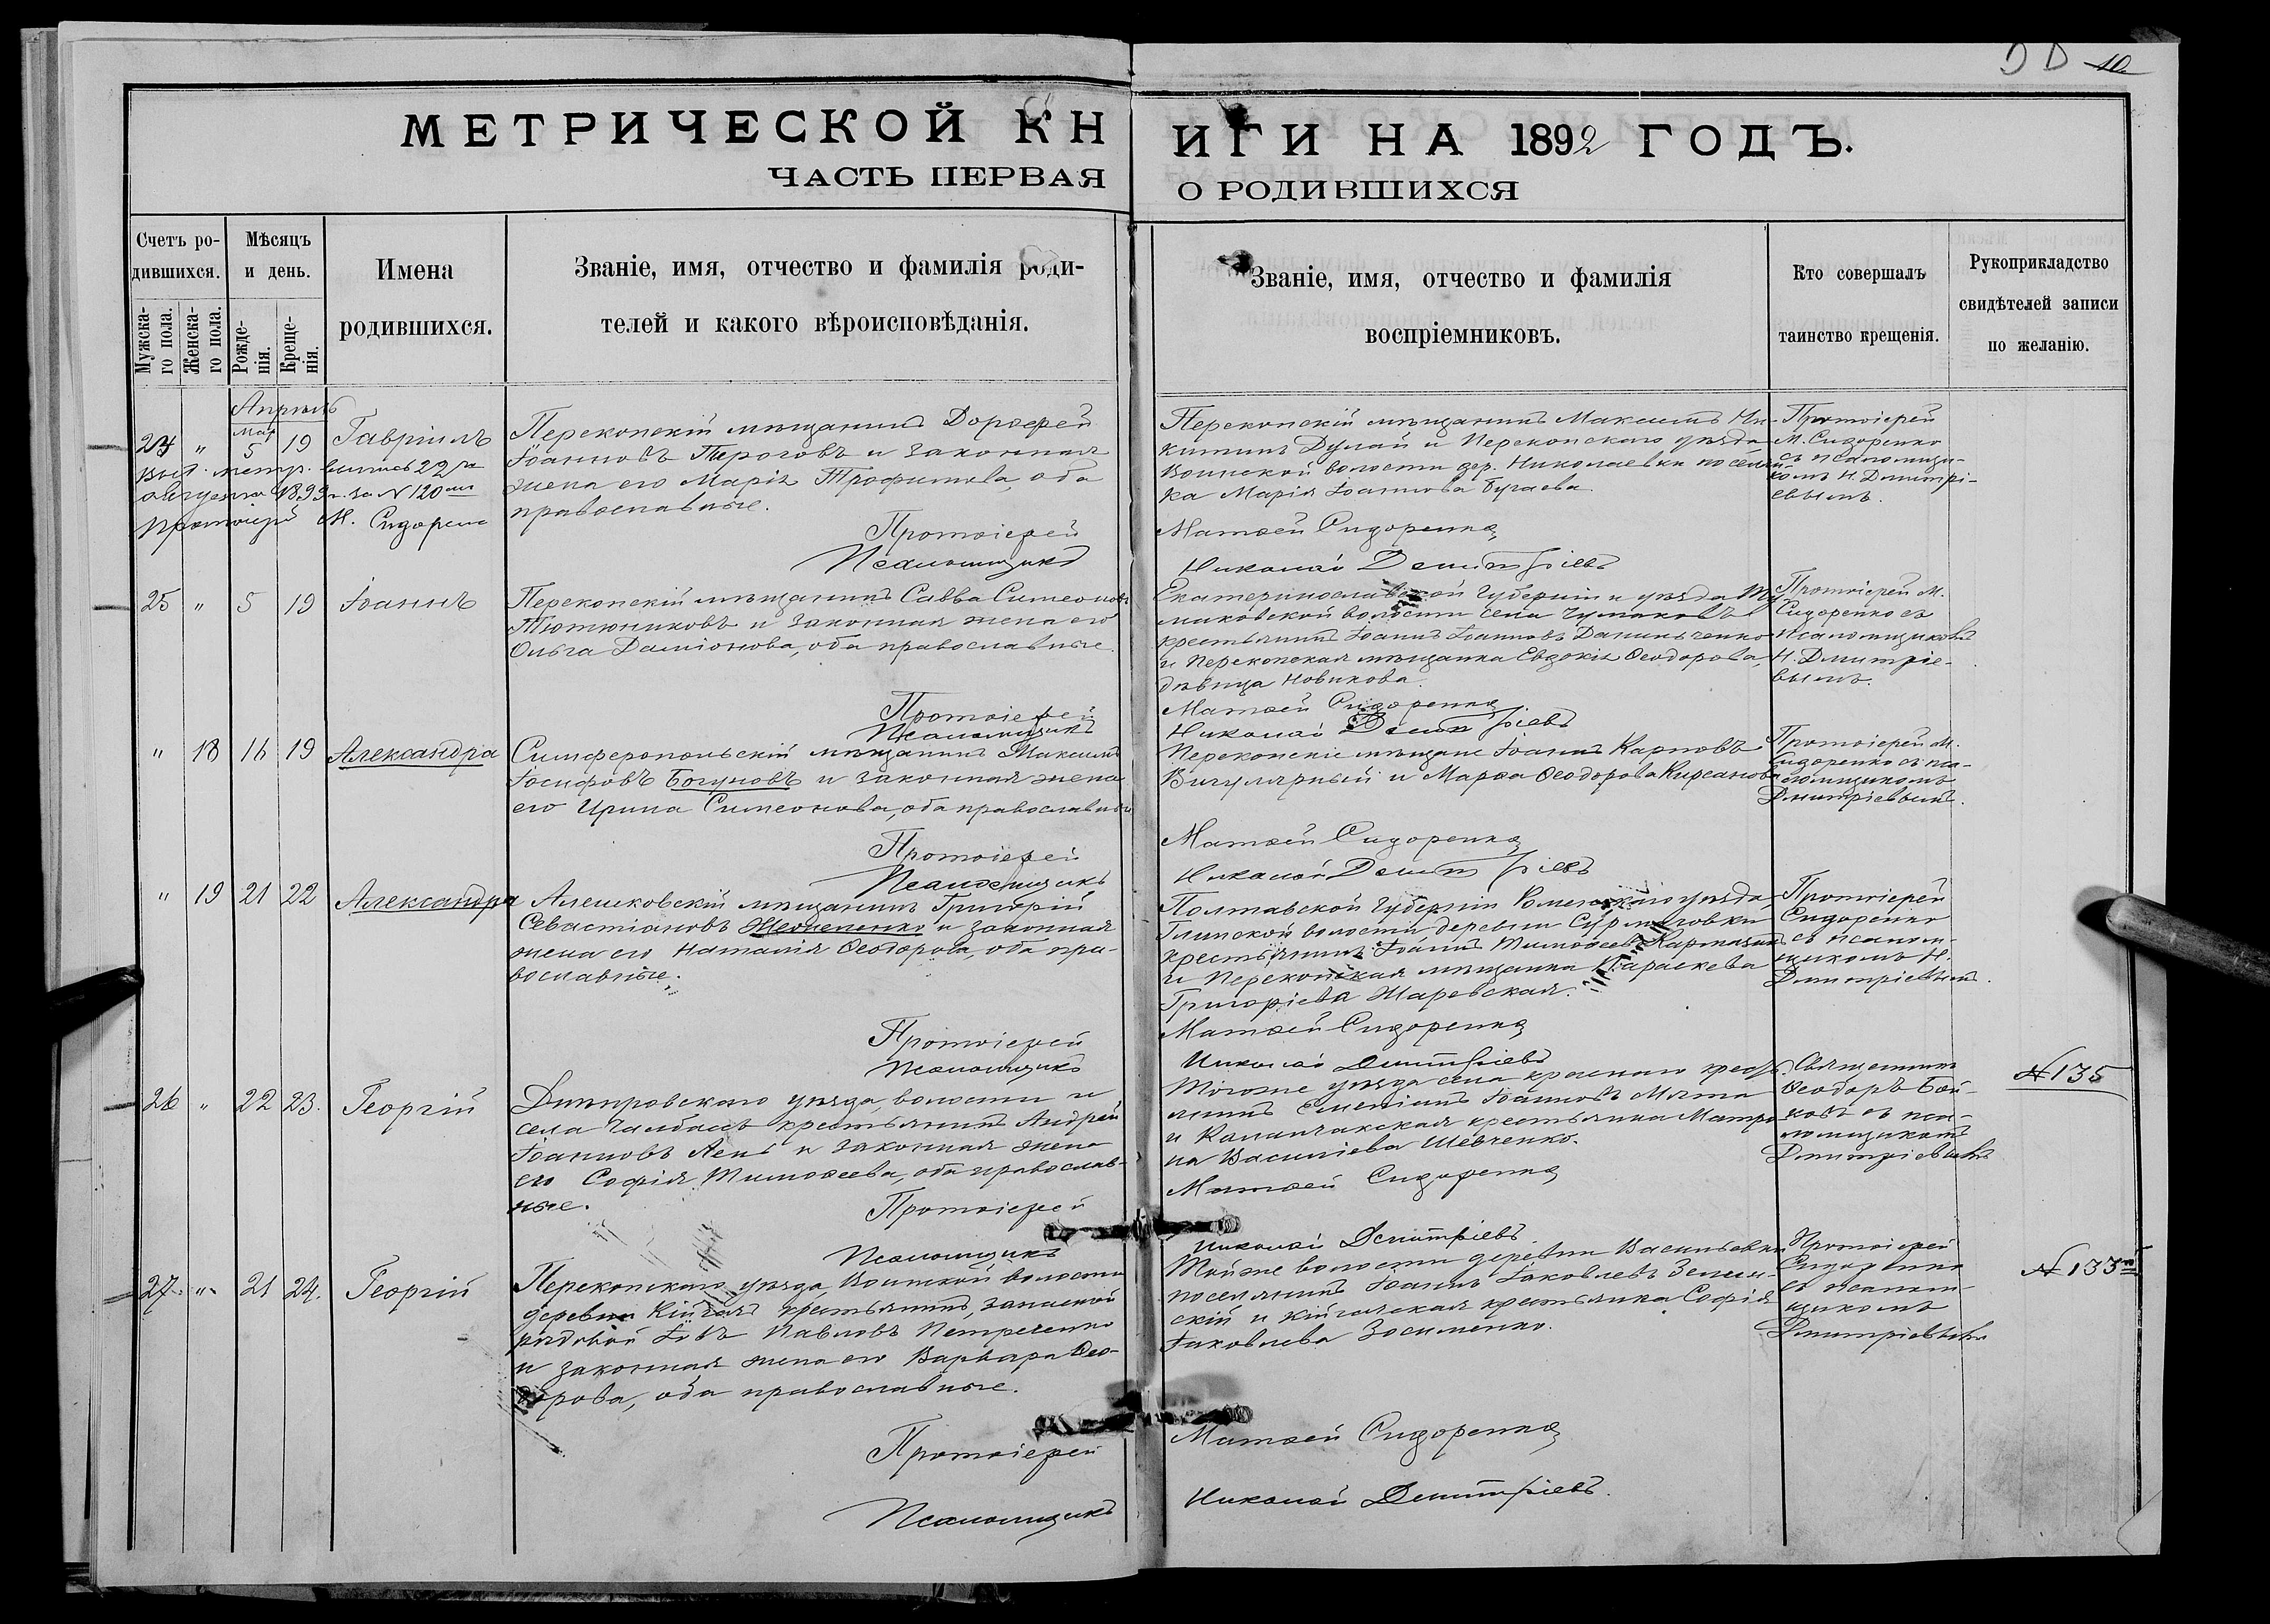 10
МЕТРИЧЕСКОЙ КН
ИГИ НА 1892 ГОДЪ.
ЧАСТЬ ПЕРВАЯ
О РОДИВШИХСЯ
Счетъ ро-
дившихся.
Мужска-
го пола.
Женска-
го пола.
Мѣсяцъ
и день.
Рожде-
нія.
Креще-
нія.
Имена
родившихся.
Званіе, имя, отчество и фамилія роди-
телей и какого вѣроисповѣданія.
Званіе, имя, отчество и фамилія
воспріемниковъ.
Кто совершалъ
таинство крещенія.
Рукоприкладство
свидѣтелей записи
по желанію.
Апрѣль
24 " 5 19 Гавріилъ
Выд. метр. выпись 22 го
августа 1899 г. за № 120
Протоіерей М. Сидоренко
Перекопскій мѣщанинъ Дорофей
Іоанновъ Пироговъ и законная
жена его Марія Трофимова, оба
православные.
Протоіерей
Псаломщикъ
Перекопскій мѣщанинъ Максимъ Ни-
китинъ Дулай и Перекопскаго уѣзда
Воинской волости дер. Николаевки поселян-
ка Марія Іоаннова Бугаева.
Матѳей Сидоренко
Николай Демитріевъ
Протоіерей
М. Сидоренко
съ псаломщи-
комъ Н. Дмитрі-
евымъ.
25 " 5 19 Іоаннъ
Перекопскій мѣщанинъ Савва Симеоновъ
Тютюниковъ и законная жена его
Ольга Даміонова, оба православные.
Протоіерей
Псаломщикъ
Екатеринославской губерніи и уѣзда
волости села Чумаковъ
крестьянинъ Іоаннъ Іоанновъ Данильченко
и Перекопская мѣщанка Евдокія Ѳеодорова,
дѣвица Новикова.
Матѳей Сидоренко
Николай Демитріевъ
Протоіерей М.
Сидоренко съ
псаломщикомъ
Н. Дмитріе-
вымъ.
" 18 16 19 Александра
Симферопольскій мѣщанинъ Максимъ
Іосифовъ Богуновъ и законная жена
его Ирина Симеонова, оба православные
Протоіерей
Псаломщикъ
Перекопскіе мѣщане Іоаннъ Карповъ
Вигулярный и Марѳа Ѳеодорова Кирсанова
Матѳей Сидоренко
Николай Демитріевъ
Протоіерей М.
Сидоренко съ пса-
ломщикомъ
Дмитріевымъ.
" 19 21 22 Александра
Алешковскій мѣщанинъ Григорій
Севастіановъ и законная
жена его Наталія Ѳеодорова, оба пра-
вославные.
Протоіерей
Псаломщикъ
Полтавской губерніи Роменскаго уѣзда,
Глинской волости деревни Сурмаговки
крестьянинъ Іоаннъ Тимоѳеевъ Карпашъ
и Перекопская мѣщанка Параскева
Григоріева Шаревская.
Матѳей Сидоренко
Николай Дмитріевъ
Протоіерей
Сидоренко
съ псалом-
щикомъ Н.
Дмитріевымъ.
26 " 22 23. Георгій
Днѣпровскаго уѣзда, волости и
села Чалбасъ крестьянинъ Андрей
Іоанновъ Лень и законная жена
его Софія Тимоѳеева, оба православ-
ные.
Протоіерей
Псаломщикъ
Тогоже уѣзда села Краснаго кресть-
янинъ Емеліанъ Іоанновъ Мята
и Каланчакская крестьянка Матро-
на Василіева Шевченко.
Матѳей Сидоренко
Николай Демитріевъ
Священникъ
Ѳеодоръ Бой-
ковъ съ пса-
ломщикомъ
Дмитріевымъ
№ 135
27. " 21 24. Георгій
Перекопскаго уѣзда, Воинской волости
деревни Кійгачъ крестьянинъ, запасной
рядовой Іовъ Павловъ Петренко
и законная жена его Варвара Ѳео-
дорова, оба православные.
Протоіерей
Псаломщикъ
Тойже волости деревни Васильевки
поселянинъ Іоаннъ Іаковлевъ Зелин-
скій и Кійгачская крестьянка Софія
Іаковлева Зосименко.
Матѳей Сидоренко
Николай Демитріевъ.
Протоіерей
Сидоренко
съ псалом-
щикомъ
Дмитріевымъ
№ 133